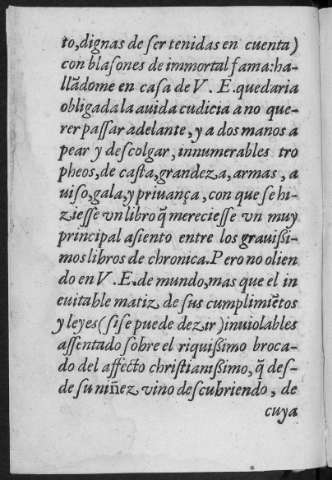 to, dignas de ser tenidas en cuenta)
con blasones de immortal fama: ha-
llãdome en casa de V. E. quedaria
obligada la auida cudicia a no que-
rer passar adelante, y a dos manos a
pear y descolgar, innumerables tro
pheos, de casta, grandeza, armas, a
uiso, gala, y priuança, con que se hi-
ziesse vn libro q̃ mereciesse vn muy
principal asiento entre los grauißi-
mos libros de chronica. Pero no olien
do en V. E. de mundo, mas que el in
euitable matiz de sus cumplimiẽtos
y leyes (si se puede dezir) inuiolables
assentado sobre el riquißimo broca-
do del affecto christianißimo, q̃ des-
de su niñez vino descubriendo, de
cuya